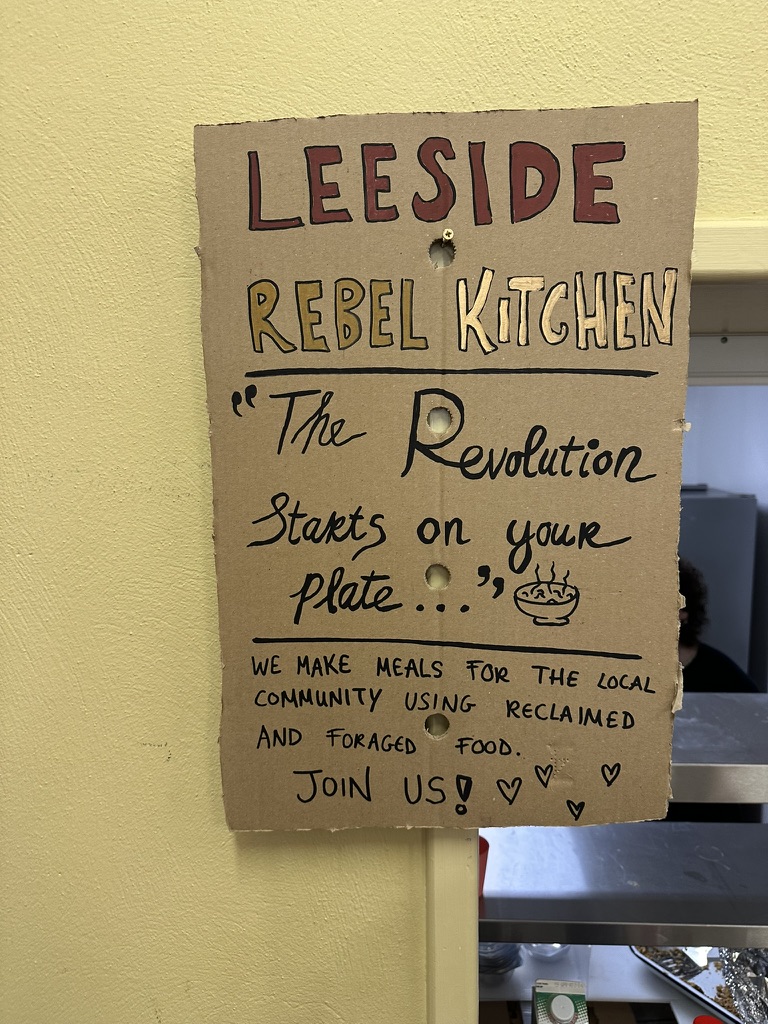 LEESIDE
REBEL KITCHEN
"The Revolution
Starts on your
plate..."
WE MAKE MEALS FOR THE LOCAL
COMMUNITY USING RECLAIMED
AND FORAGED FOOD.
JOIN US!